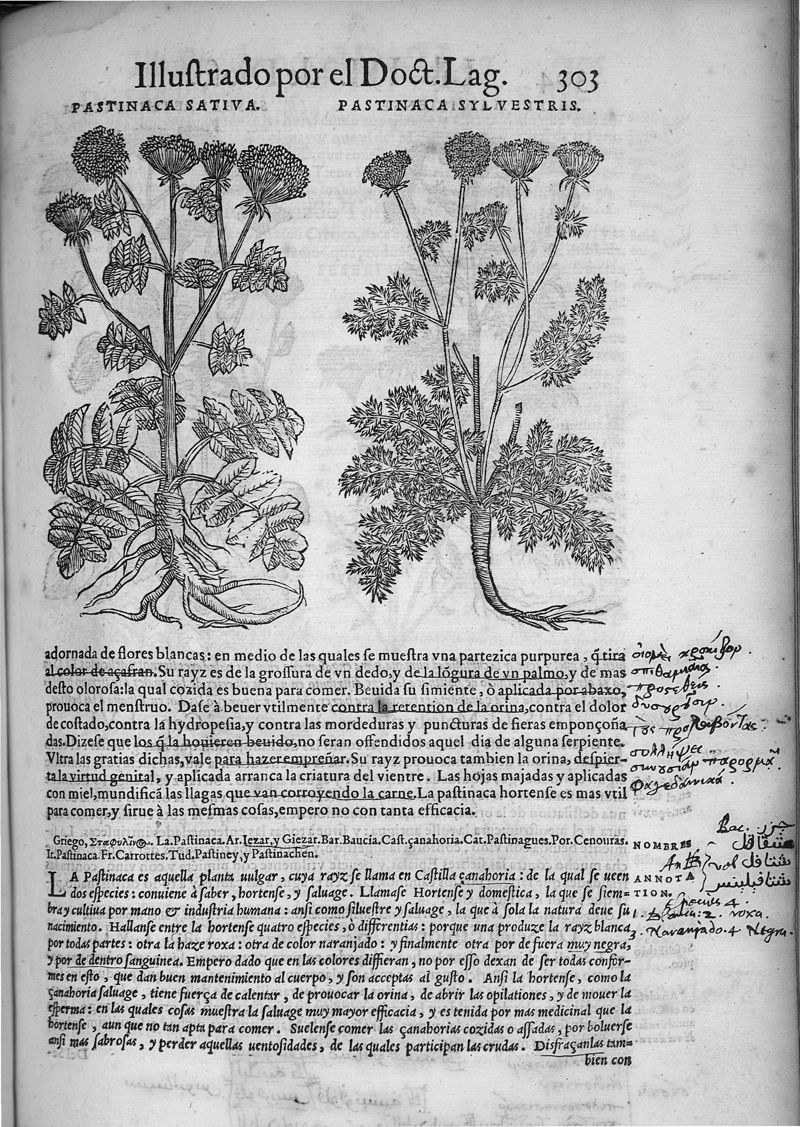 Illustrado por el Doct. Lag. 303
PASTINACA SATIVA.
PASTINACA SYLVESTRIS.
adornada de flores blancas: en medio de las quales se muestra vna partezica purpurea, q̃ tira
al color de açafran. Su rayz es de la grossura de vn dedo, y de la lõgura de vn palmo, y de mas
desto olorosa: la qual cozida es buena para comer. Beuida su simiente, ò aplicada por abaxo,
prouoca el menstruo. Dase à beuer vtilmente contra la retention de la orina, contra el dolor
de costado, contra la hydropesia, y contra las mordeduras y puncturas de fieras emponçoña
das. Dizese que los q̃ la houieren beuido, no seran offendidos aquel dia de alguna serpiente.
Vltra las gratias dichas, vale para hazer empreñar. Su rayz prouoca tambien la orina, despier-
ta la virtud genital, y aplicada arranca la criatura del vientre. Las hojas majadas y aplicadas
con miel, mundificã las llagas que van corroyendo la carne. La pastinaca hortense es mas vtil
para comer, y sirue à las mesmas cosas, empero no con tanta efficacia.
Griego, Σταφυλῖν⊙. La. Pastinaca. Ar. Iezar, y Giezar. Bar. Baucia. Cast. çanahoria. Cat. Pastinagues. Por. Cenouras.
It. Pastinaca. Fr. Carrottes. Tud. Pastiney, y Pastinachen.
NOMBRES
LA Pastinaca es aquella planta uulgar, cuya rayz se llama en Castilla çanahoria: de la qual se ueen
dos especies: conuiene à saber, hortense, y saluage. Llamase Hortense y domestica, la que se siem-
bra y cultiua por mano & industria humana: ansi como siluestre y saluage, la que à sola la natura deue su
nacimiento. Hallanse entre la hortense quatro especies, ò differentias: porque una produze la rayz blanca
por todas partes: otra la haze roxa: otra de color naranjado: y finalmente otra por de fuera muy negra,
y por de dentro sanguinea. Empero dado que en las colores differan, no por esso dexan de ser todas confor-
mes en esto, que dan buen mantenimiento al cuerpo, y son acceptas al gusto. Ansi la hortense, como la
çanahoria saluage, tiene fuerça de calentar, de prouocar la orina, de abrir las opilationes, y de mouer la
esperma: en las quales cosas muestra la saluage muy mayor efficacia, y es tenida por mas medicinal que la
hortense, aun que no tan apta para comer. Suelense comer las çanahorias cozidas o assadas, por boluerse
ansi mas sabrosas, y perder aquellas uentosidades, de las quales participan las crudas. Disfraçanlas tam-
bien con
ANNOTA
TION.
especies 4
2. roxa.
3. Naranjado. 4 Negra.